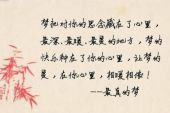 梦把对你的思念藏在了心里,
最深、最暖、最真的地方,梦的
快乐种在了你的心里,让梦的
灵,在你心里,相暖相依!
---最真的梦